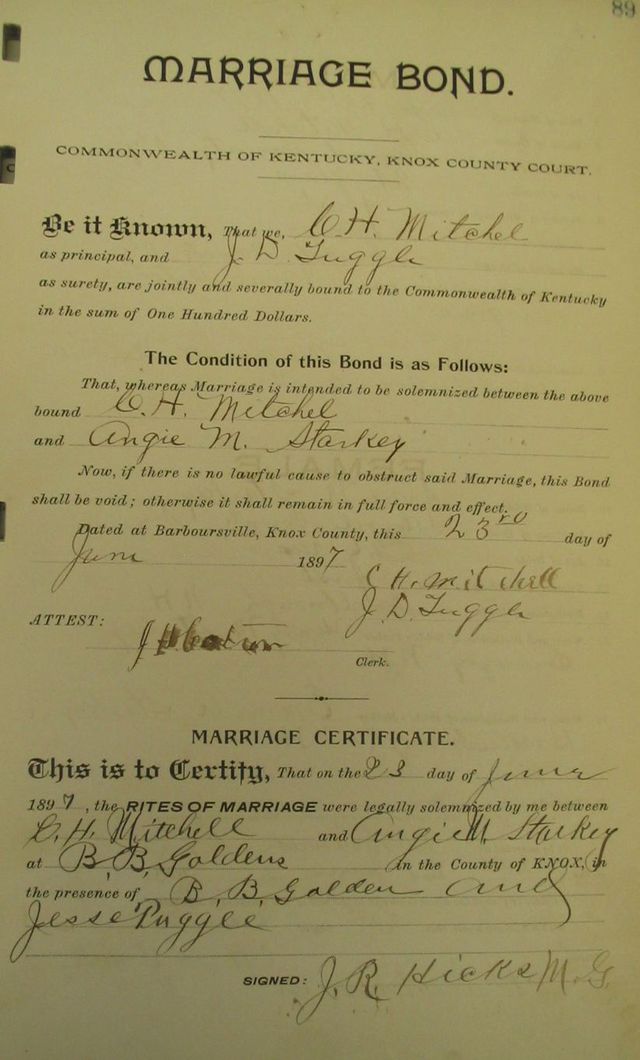 89
MARRIAGE BOND.
COMMONWEALTH OF KENTUCKY, KNOX COUNTY COURT.
Be it Known, That we, C. H. Mitchel
as principal, and J. D. Tuggle
as surety, are jointly and severally bound to the Commonwealth of Kentucky
in the sum of One Hundred Dollars.
The Condition of this Bond is as Follows:
That, whereas Marriage is intended to be solemnized between the above
bound C. H. Mitchel
and Angie M. Starkey
Now, if there is no lawful cause to obstruct said Marriage, this Bond
shall be void; otherwise it shall remain in full force and effect.
Dated at Barboursville, Knox County, this 23rd day of
June 1897
C H. Mitchell
J. D. Tuggle
ATTEST:
Clerk.
MARRIAGE CERTIFICATE.
This is to Certify, That on the 23 day of June
1897, the RITES OF MARRIAGE were legally solemnized by me between
C. H. Mitchell and Angie M. Starkey
at B. B. Goldens in the County of KNOX, in
the presence of B. B. Golden and
Jesse Tuggle
SIGNED: J. R. Hicks M. G.